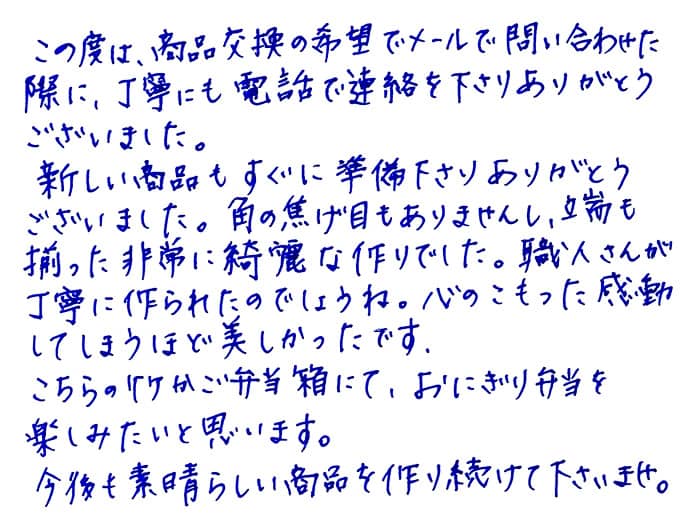 この度は、商品交換の希望でメールで問い合わせた
際に、丁寧にも電話で連絡を下さりありがとう
ございました。
新しい商品もすぐに準備下さりありがとう
ございました。角の焦げ目もありませんし、端も
揃った非常に綺麗な作りでした。職人さんが
丁寧に作られたのでしょうね。心のこもった感動
してしまうほど美しかったです.
こちらの竹かご弁当箱にて、おにぎり弁当を
楽しみたいと思います。
今後も素晴らしい商品を作り続けて下さいませ。